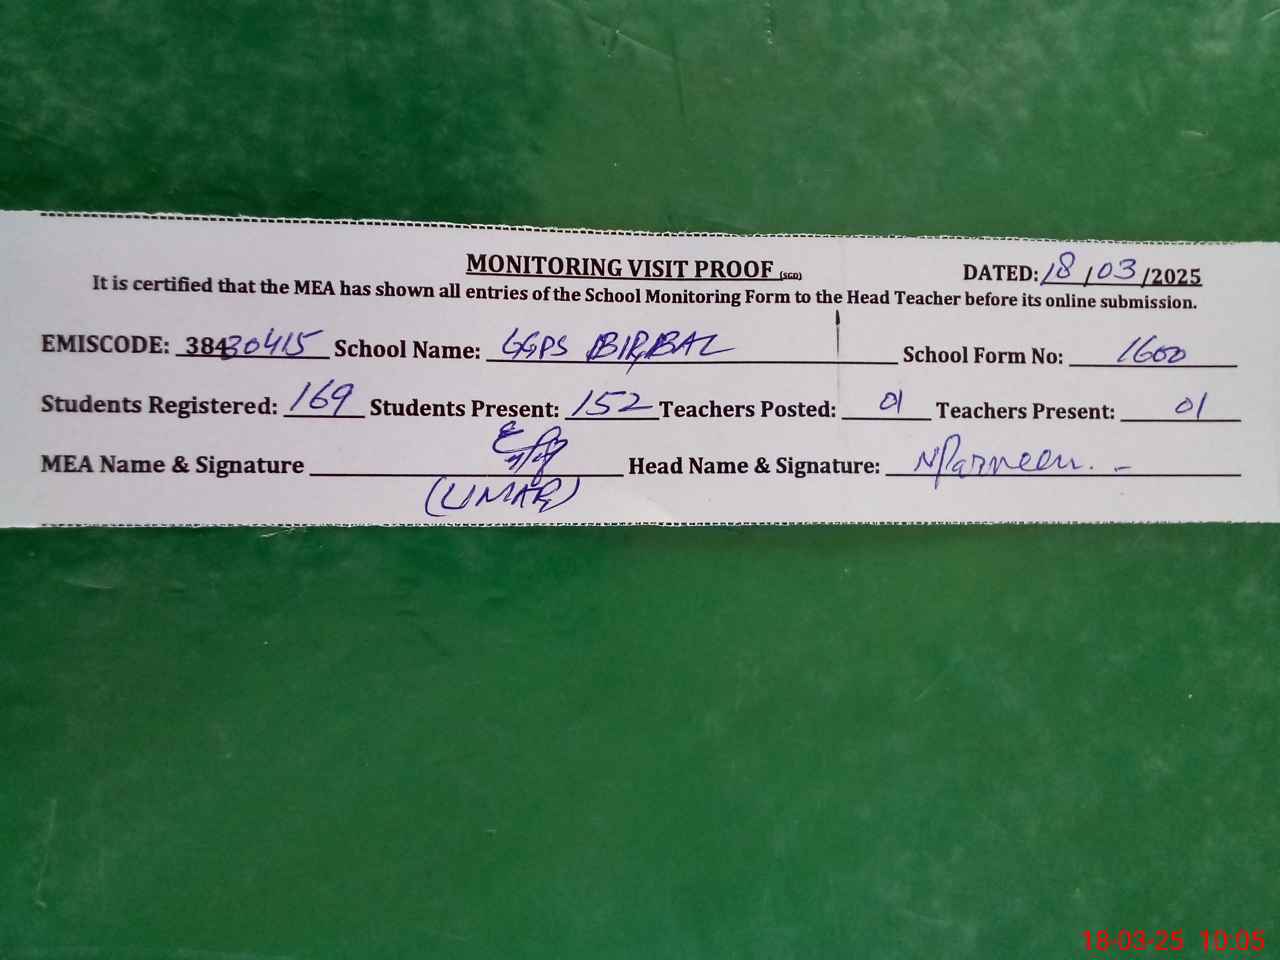 MONITORING VISIT PROOF (SGD) DATED: 18/03/2025
It is certified that the MEA has shown all entries of the School Monitoring Form to the Head Teacher before its online submission.
EMISCODE: 38430415 School Name: GGPS BIRBAL School Form No: 1600
Students Registered: 169 Students Present: 152 Teachers Posted: 01 Teachers Present: 01
MEA Name & Signature Head Name & Signature: NParneen.
(UMAR)
18-03-25 10:05